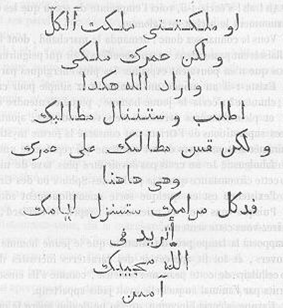 لو ملكتنى ملكت آلكلّ
و لكن عمرك ملكى
واراد الله هكذا
اطلب و ستننال مطالبك
و لكن قس مطالبك على عمرك
وهى هاهنا
فبكل مرامك ستنزل ايامك
أتريد فى
الله مجيبك
آمين